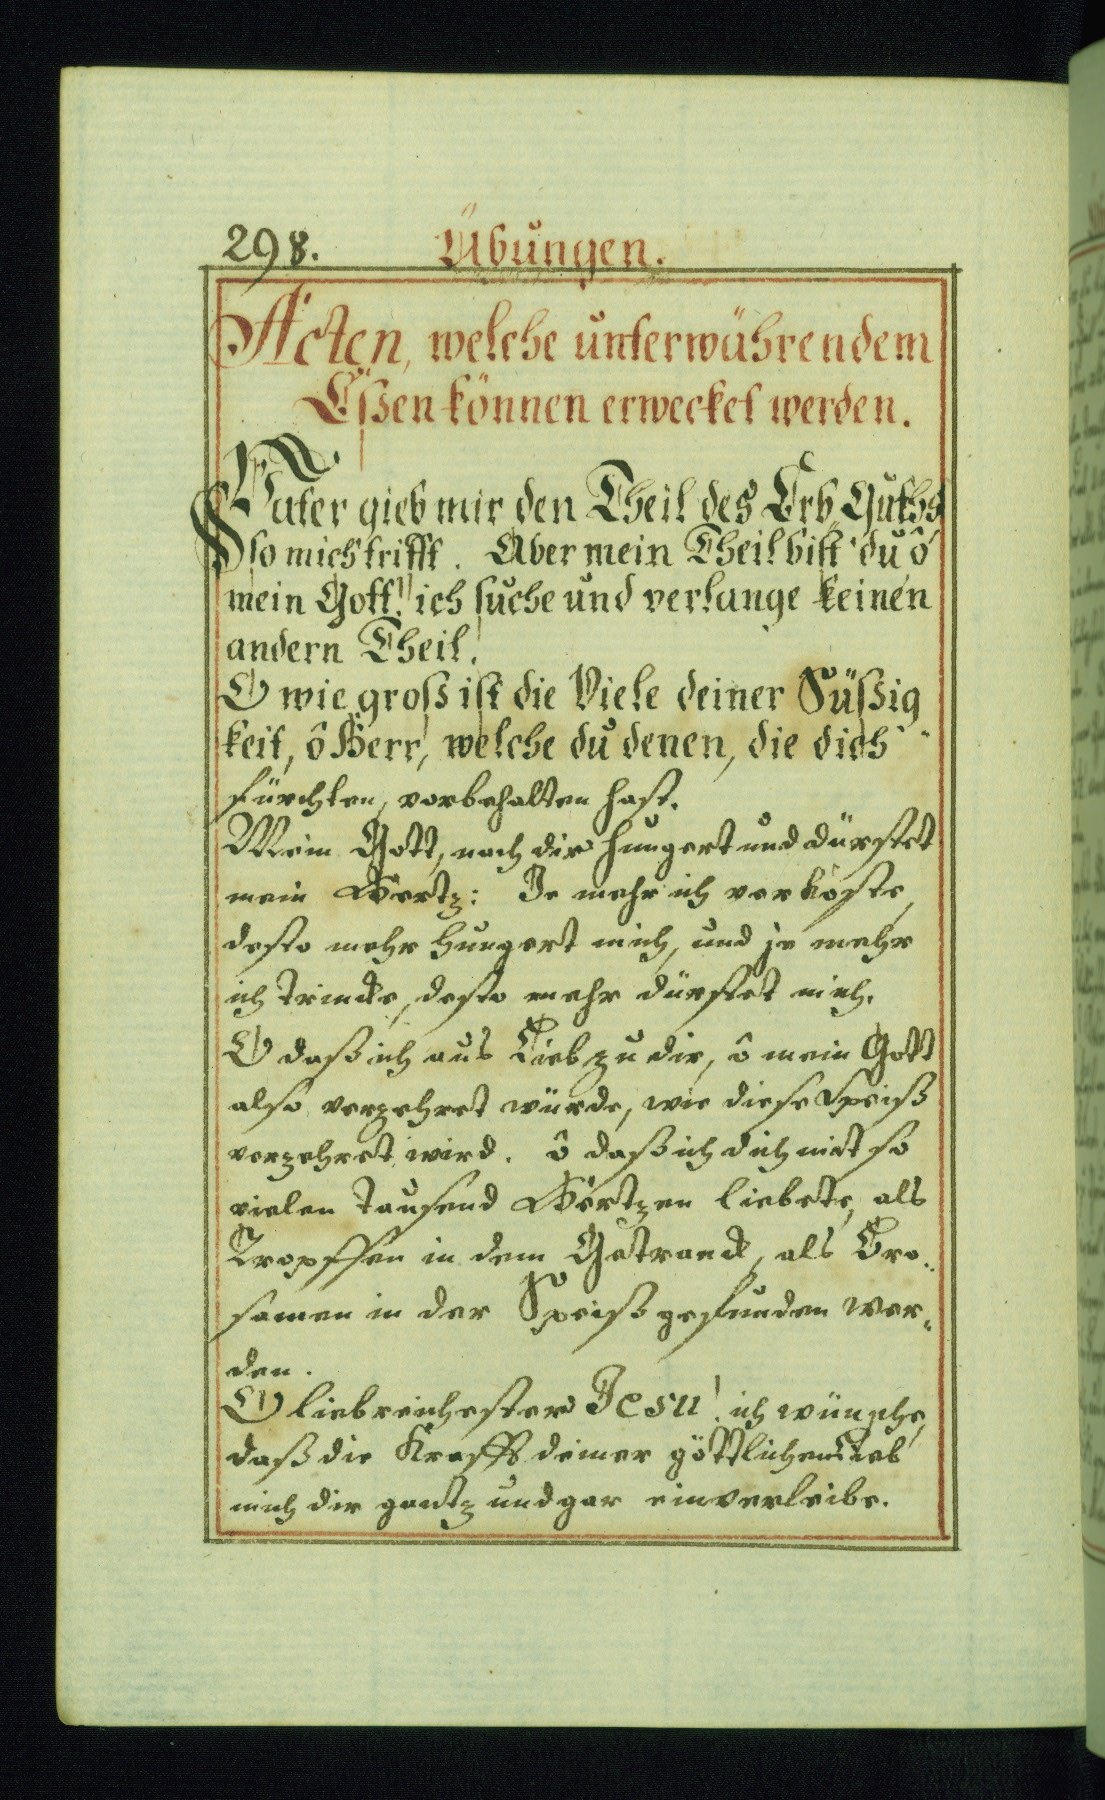 298. Übungen.
Acten, welche unterwührendem
Eßen können erwecket werden.
Vater gieb mir den Theil des Erb Guths
so mich trifft. Aber mein Theil bist du ô
mein Gott! ich suche und verlange keinen
andern Theil.
O wie groß ist die Viele deiner Süßig
keit, ô Herr, welche du denen, die dich
fürchten, vorbehalten hast.
Mein Gott, nach dir hungert und dürstet
mein Hertz: Je mehr ich verkoste,
desto mehr hungert mich, und je mehr
ich trincke, desto mehr dürstet mich.
O daß ich aus Lieb zu dir, ô mein Gott
also verzehret würde, wie diese Speiß
verzehret wird. ô daß ich dich mit so
vielen tausend Hertzen liebete, als
Tropffen in dem Getranck, als Bro-
samen in der Speiß gefunden wer-
den.
O liebreichester Jesu! ich wünsche,
daß die Krafft deiner göttlichen Lieb
mich dir gantz und gar einverleibe.